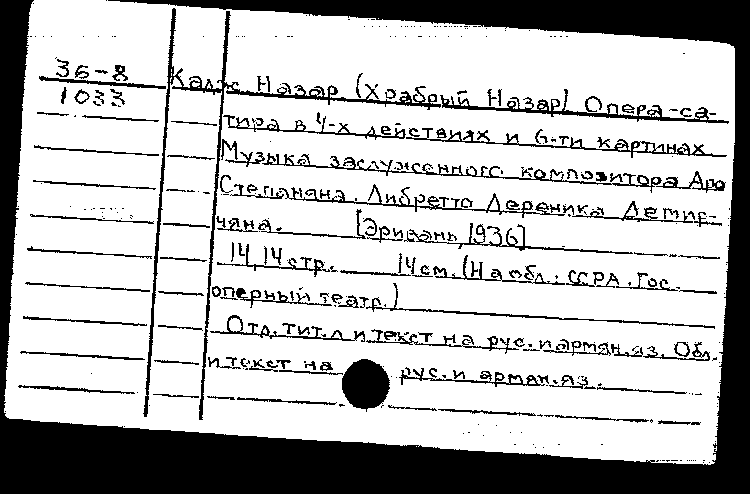 36-8
1033
Кадж Назар (Храбрый Назар) Опера-са-
тира в 4-х действиях и 6-ти картинах
Музыка заслуженного композитора Аро
Степаняна. Либретто Дереника Демир-
чяна. [Эривань, 1936]
14, 14 стр. 14 см. (На обл.: ССРА. Гос.
оперный театр.)
Отд. тит. л и текст на рус. и армян. яз. Обл.
и текст на рус. и армян. яз.